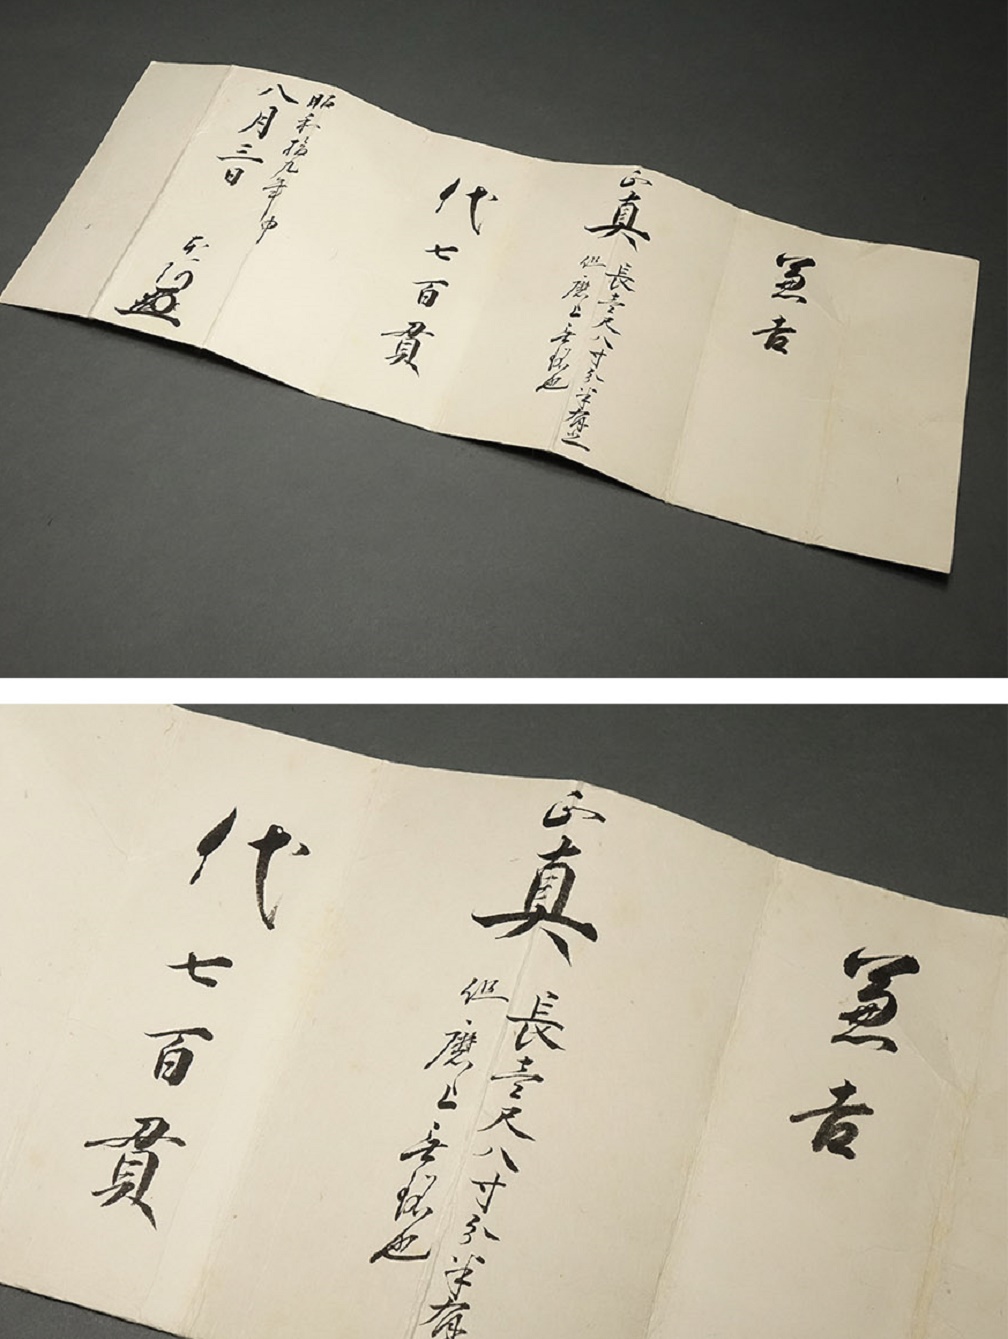 兼吉
正真
長壹尺八寸分半有之
但磨上無銘也
代
七百貫
昭和拾九年申
八月三日
本阿
兼吉
正真
長壹尺八寸分半有
但磨上無銘也
代
七百貫